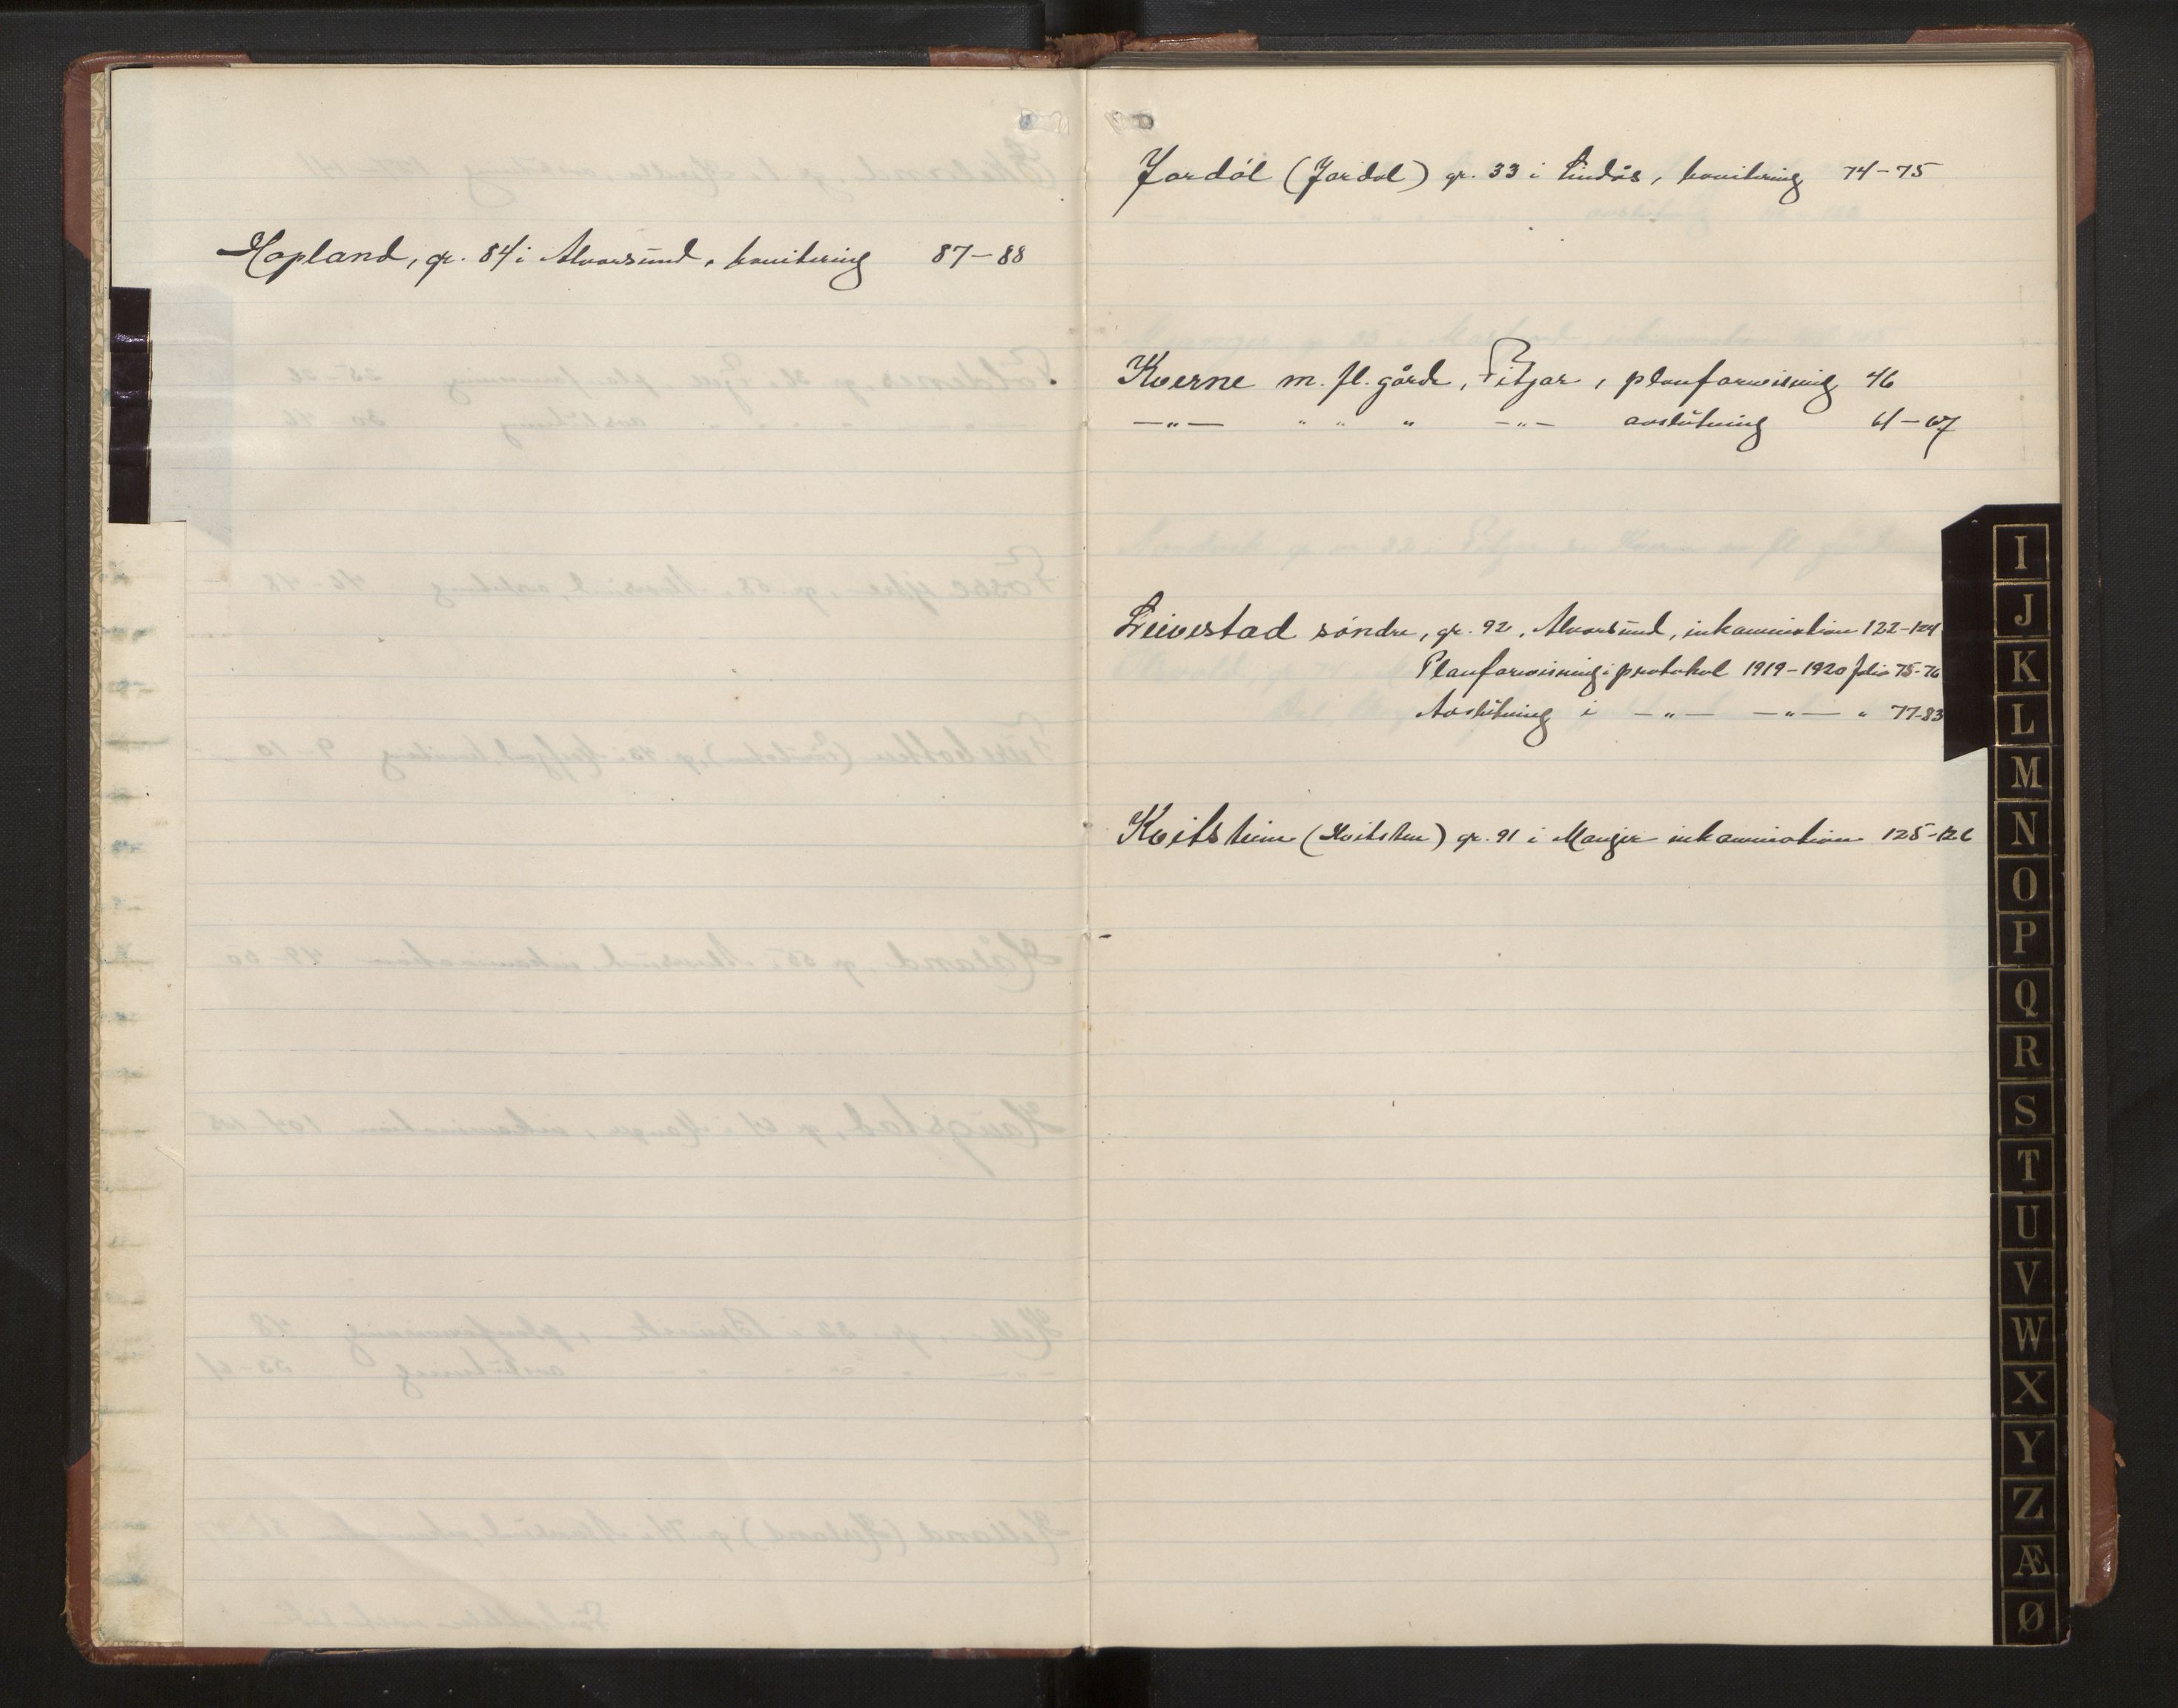 Hopland, gr. 84 i Alversund, bonitering 87-88
Jordål (Jordal) gr. 33 i Lindås, bonitering 74-75
Kverne m. fl. gårde, Fitjar, planforvisning 46
—"— " " " —"— avslutning 61-67
Leivestad søndre, gr. 92, Alversund, inkamination 122-124
Planforvisning i protokol 1919-1920 folio 75-76
Avslutning i —"— —"— " 77-83
Kvitstein (Kvitsten) gr. 91 i Manger inkamination 125-126
I
J
K
L
M
N
O
P
Q
R
S
T
U
V
W
X
Y
Z
Æ
Ø